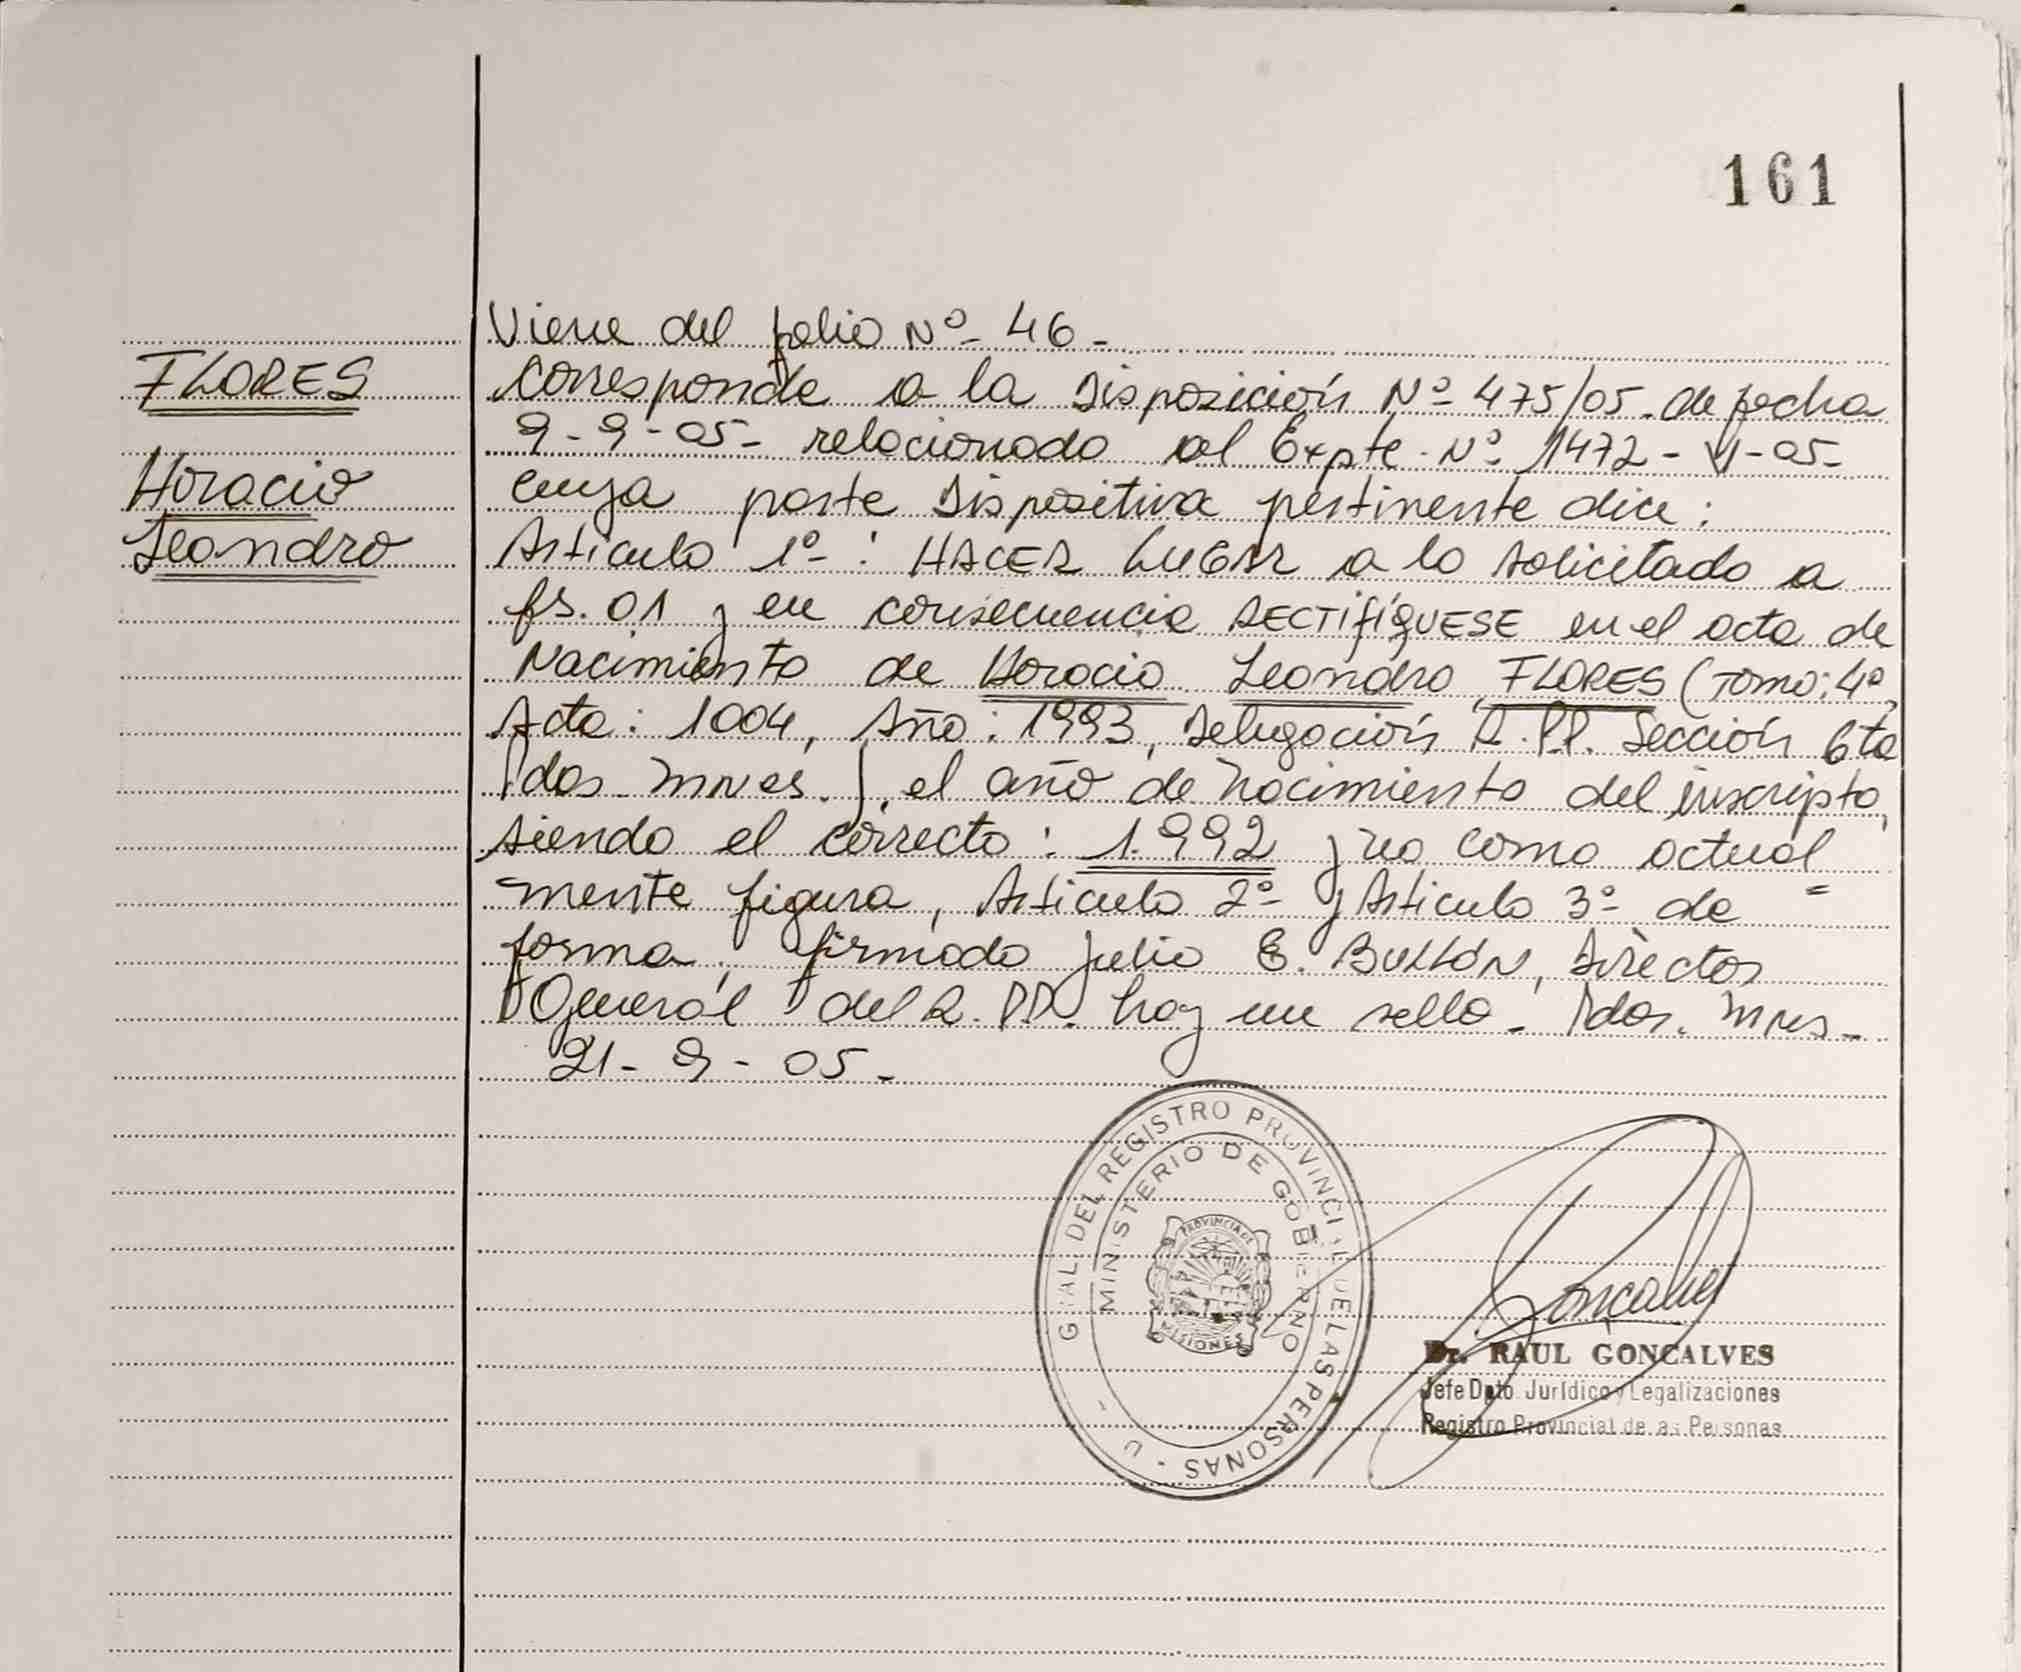 161
Viene del folio Nº 46-
FLORES
Corresponde a la Disposición Nº 475/05. de fecha
9-9-05- relacionado al Expte. Nº 1472- -05-
Horacio
cuya parte Dispositiva pertinente dice:
Leandro
Artículo 1º-: HACER LUGAR a lo solicitado a
fs. 01 y en consecuencia RECTIFÍQUESE en el acta de
Nacimiento de Horacio Leandro FLORES (Tomo: 4º,
Acta: 1004, Año: 1993, Delegación R.PP. Sección 6ta
Pdas. Mnes.), el año de nacimiento del inscripto,
siendo el correcto: 1.992 y no como actual
mente figura, Artículo 2º- y Artículo 3º- de =
forma, firmado Julio E. BULLÓN, Director
General del R.PP. hay un sello- Pdas. Mnes-
21-9-05-
GRAL. DEL REGISTRO PROVINCIAL DE LAS PERSONAS
MINISTERIO DE GOBIERNO
PROVINCIA DE
MISIONES
Goncalves
Dr. RAUL GONCALVES
Jefe Dpto. Jurídico y Legalizaciones
Registro Provincial de las Personas